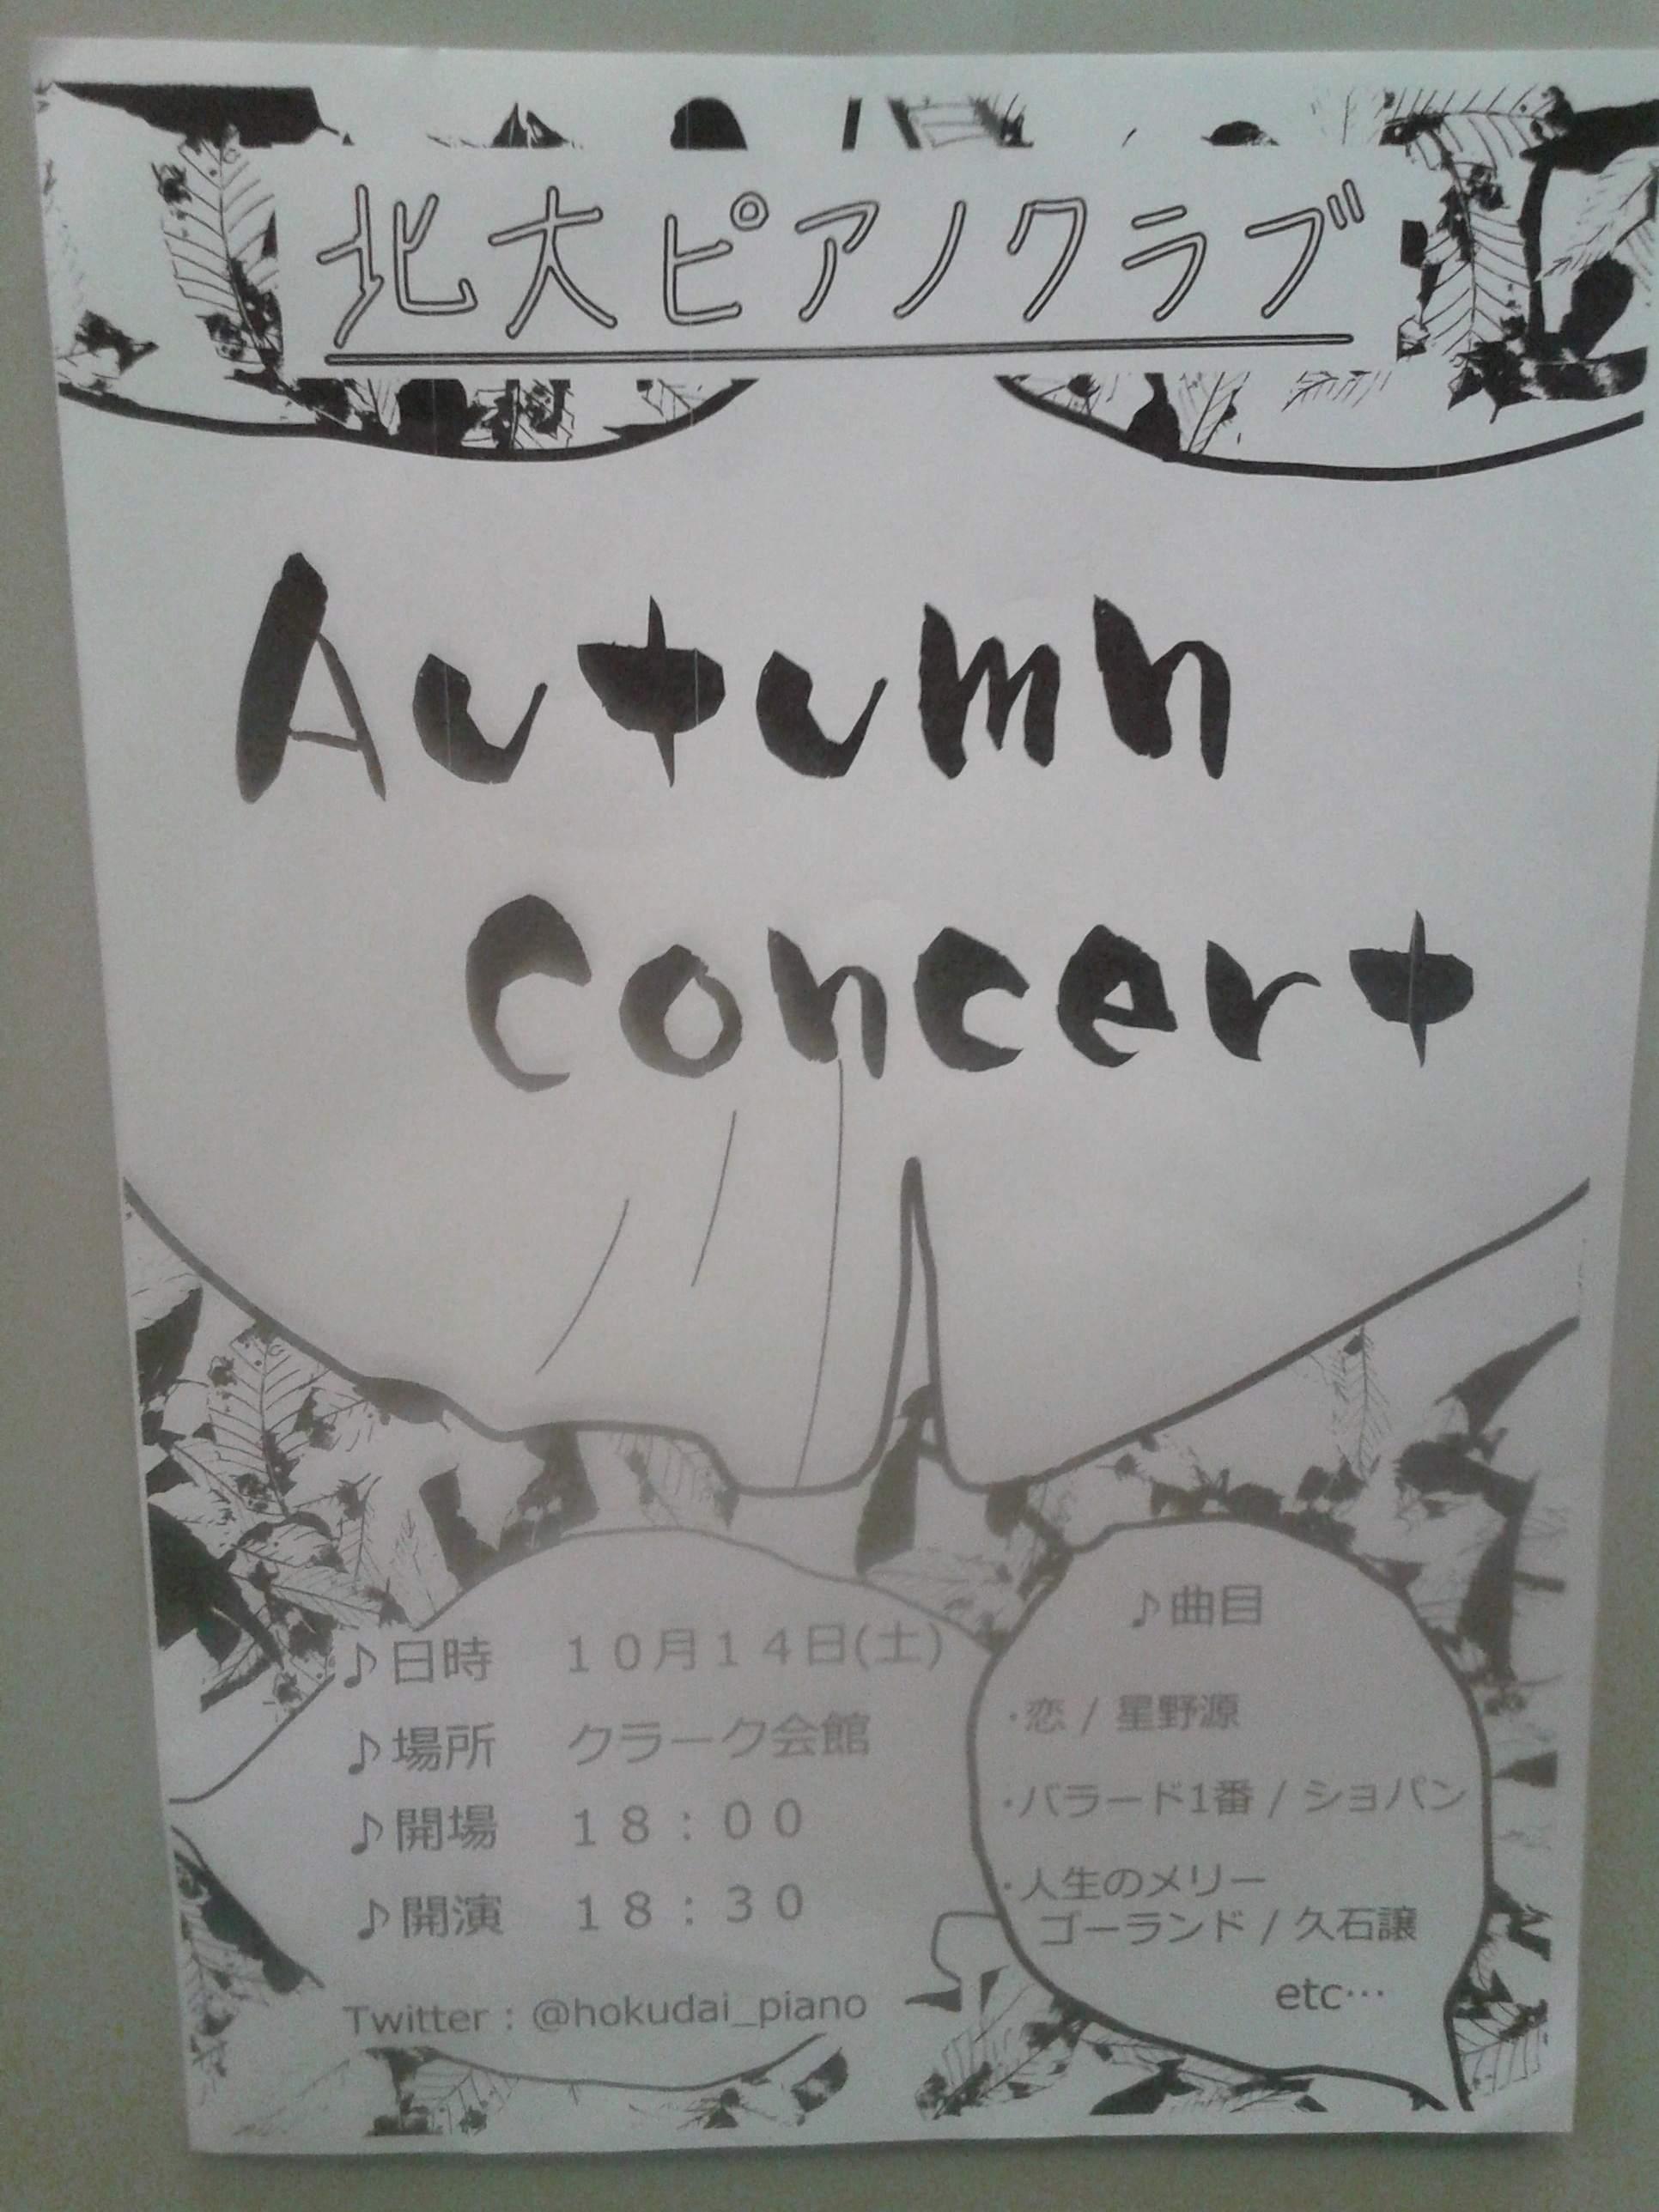 北大ピアノクラブ
Autumn
Concert
♪日時 10月14日(土)
♪場所 クラーク会館
♪開場 18:00
♪開演 18:30
Twitter : @hokudai_piano
♪曲目
・恋 / 星野源
・バラード1番 / ショパン
・人生のメリー
ゴーランド / 久石譲
etc…